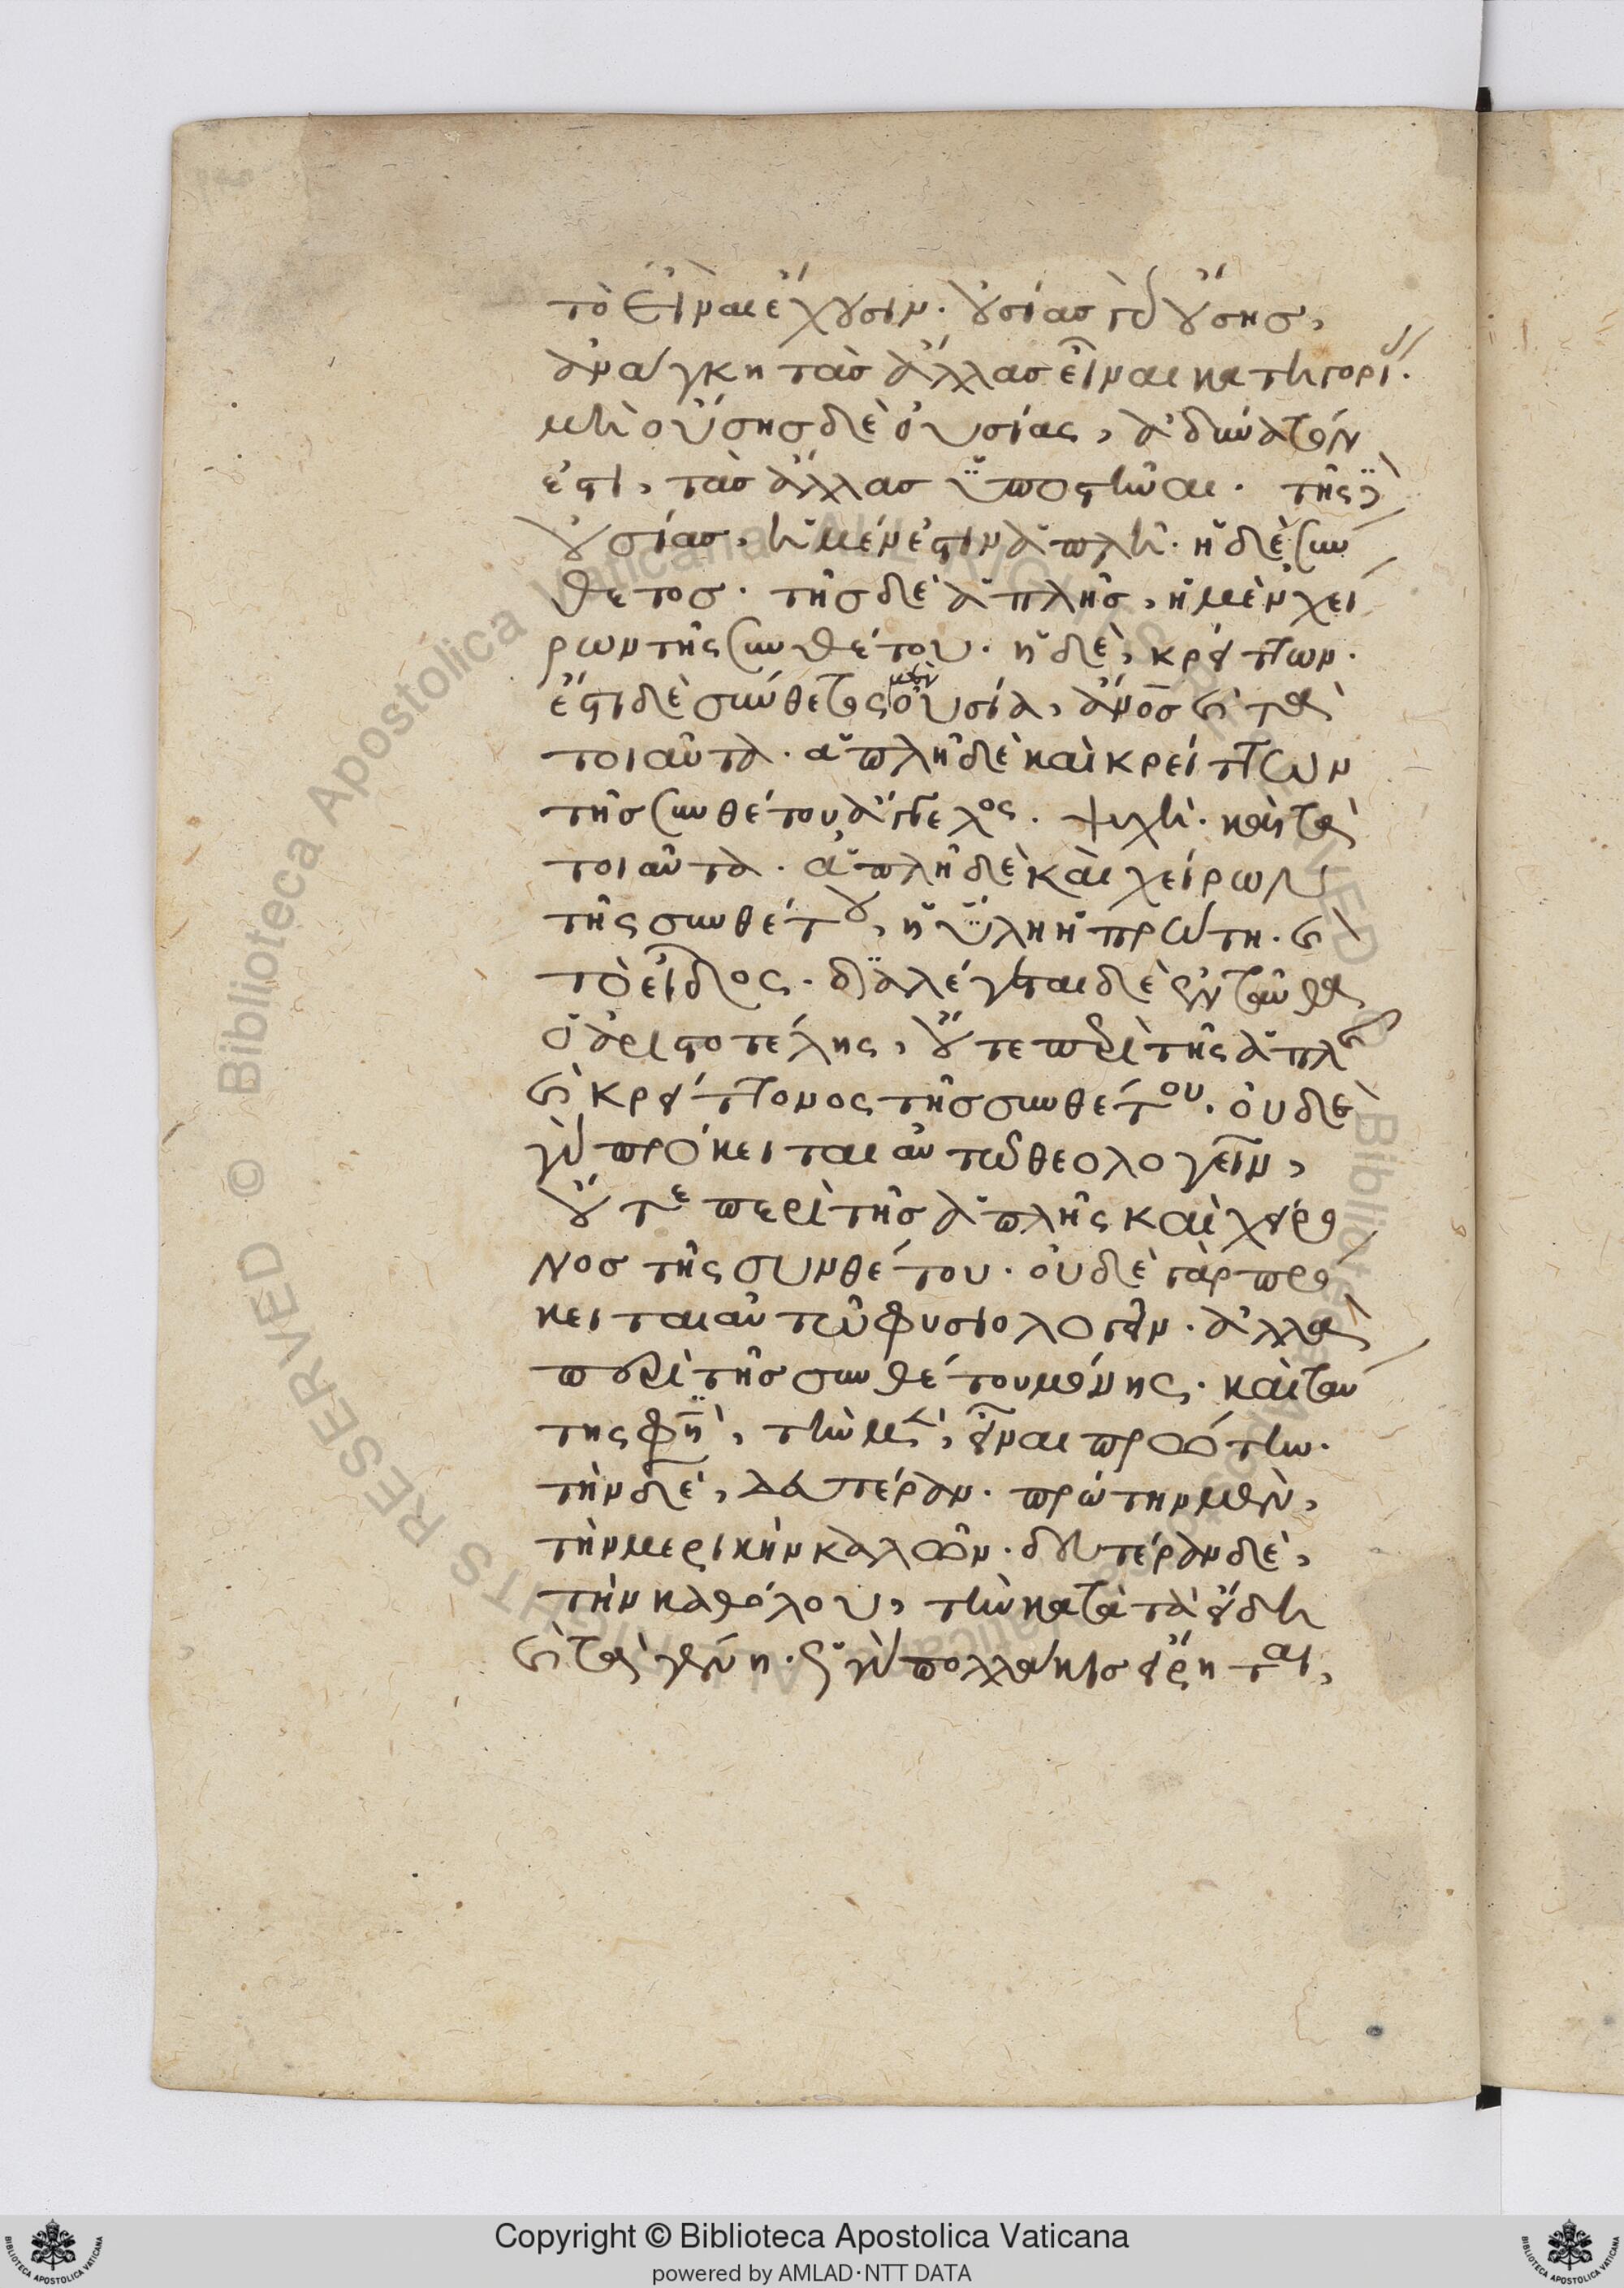 τὸ εἶναι ἔχουσιν· οὐσίας γὰρ οὔσης,
ἀνάγκη τὰς ἄλλας εἶναι κατηγορί·
μὴ οὔσης δὲ οὐσίας, ἀδύνατόν
ἐστι, τὰς ἄλλας ὑποστῆναι. τῆς δὲ
οὐσίας, ἡ μέν ἐστιν ἁπλῆ· ἡ δὲ σύν
θετος· τῆς δὲ ἁπλῆς, ἡ μὲν χεί
ρων τῆς συνθέτου· ἡ δὲ, κρείττων·
ἔστι δὲ σύνθετος μὲν οὐσία, ἄνος καὶ τὰ
τοιαῦτα· ἁπλῆ δὲ καὶ κρείττων
τῆς συνθέτου ἄγγελος· ψυχὴ· καὶ τὰ
τοιαῦτα· ἁπλῆ δὲ καὶ χείρων
τῆς συνθέτου, ἡ ὕλη ἡ πρώτη· καὶ
τὸ εἶδος· διαλέγεται δὲ ἐνταῦθα
ὁ ἀριστοτέλης, οὔτε περὶ τῆς ἁπλῆς
καὶ κρείττονος τῆς συνθέτου· οὐδὲ
γὰρ πρόκειται αὐτῶ θεολογεῖν,
οὔτε περὶ τῆς ἁπλῆς καὶ χείρο
νος τῆς συνθέτου· οὐδὲ γὰρ πρό
κειται αὐτῶ φυσιολογεῖν· ἀλλὰ
περὶ τῆς συνθέτου μόνης· καὶ ταύ
της φησὶ, τὴν μὲν, εἶναι πρώτην·
τὴν δὲ, δευτέραν· πρώτην μὲν,
τὴν μερικὴν καλῶν· δευτέραν δὲ,
τὴν καθόλου, τὴν κατὰ τὰ εἴδη
καὶ τὰ γένη· ὡς γὰρ πολλάκις εἴρηται,
Copyright © Biblioteca Apostolica Vaticana
powered by AMLAD·NTT DATA